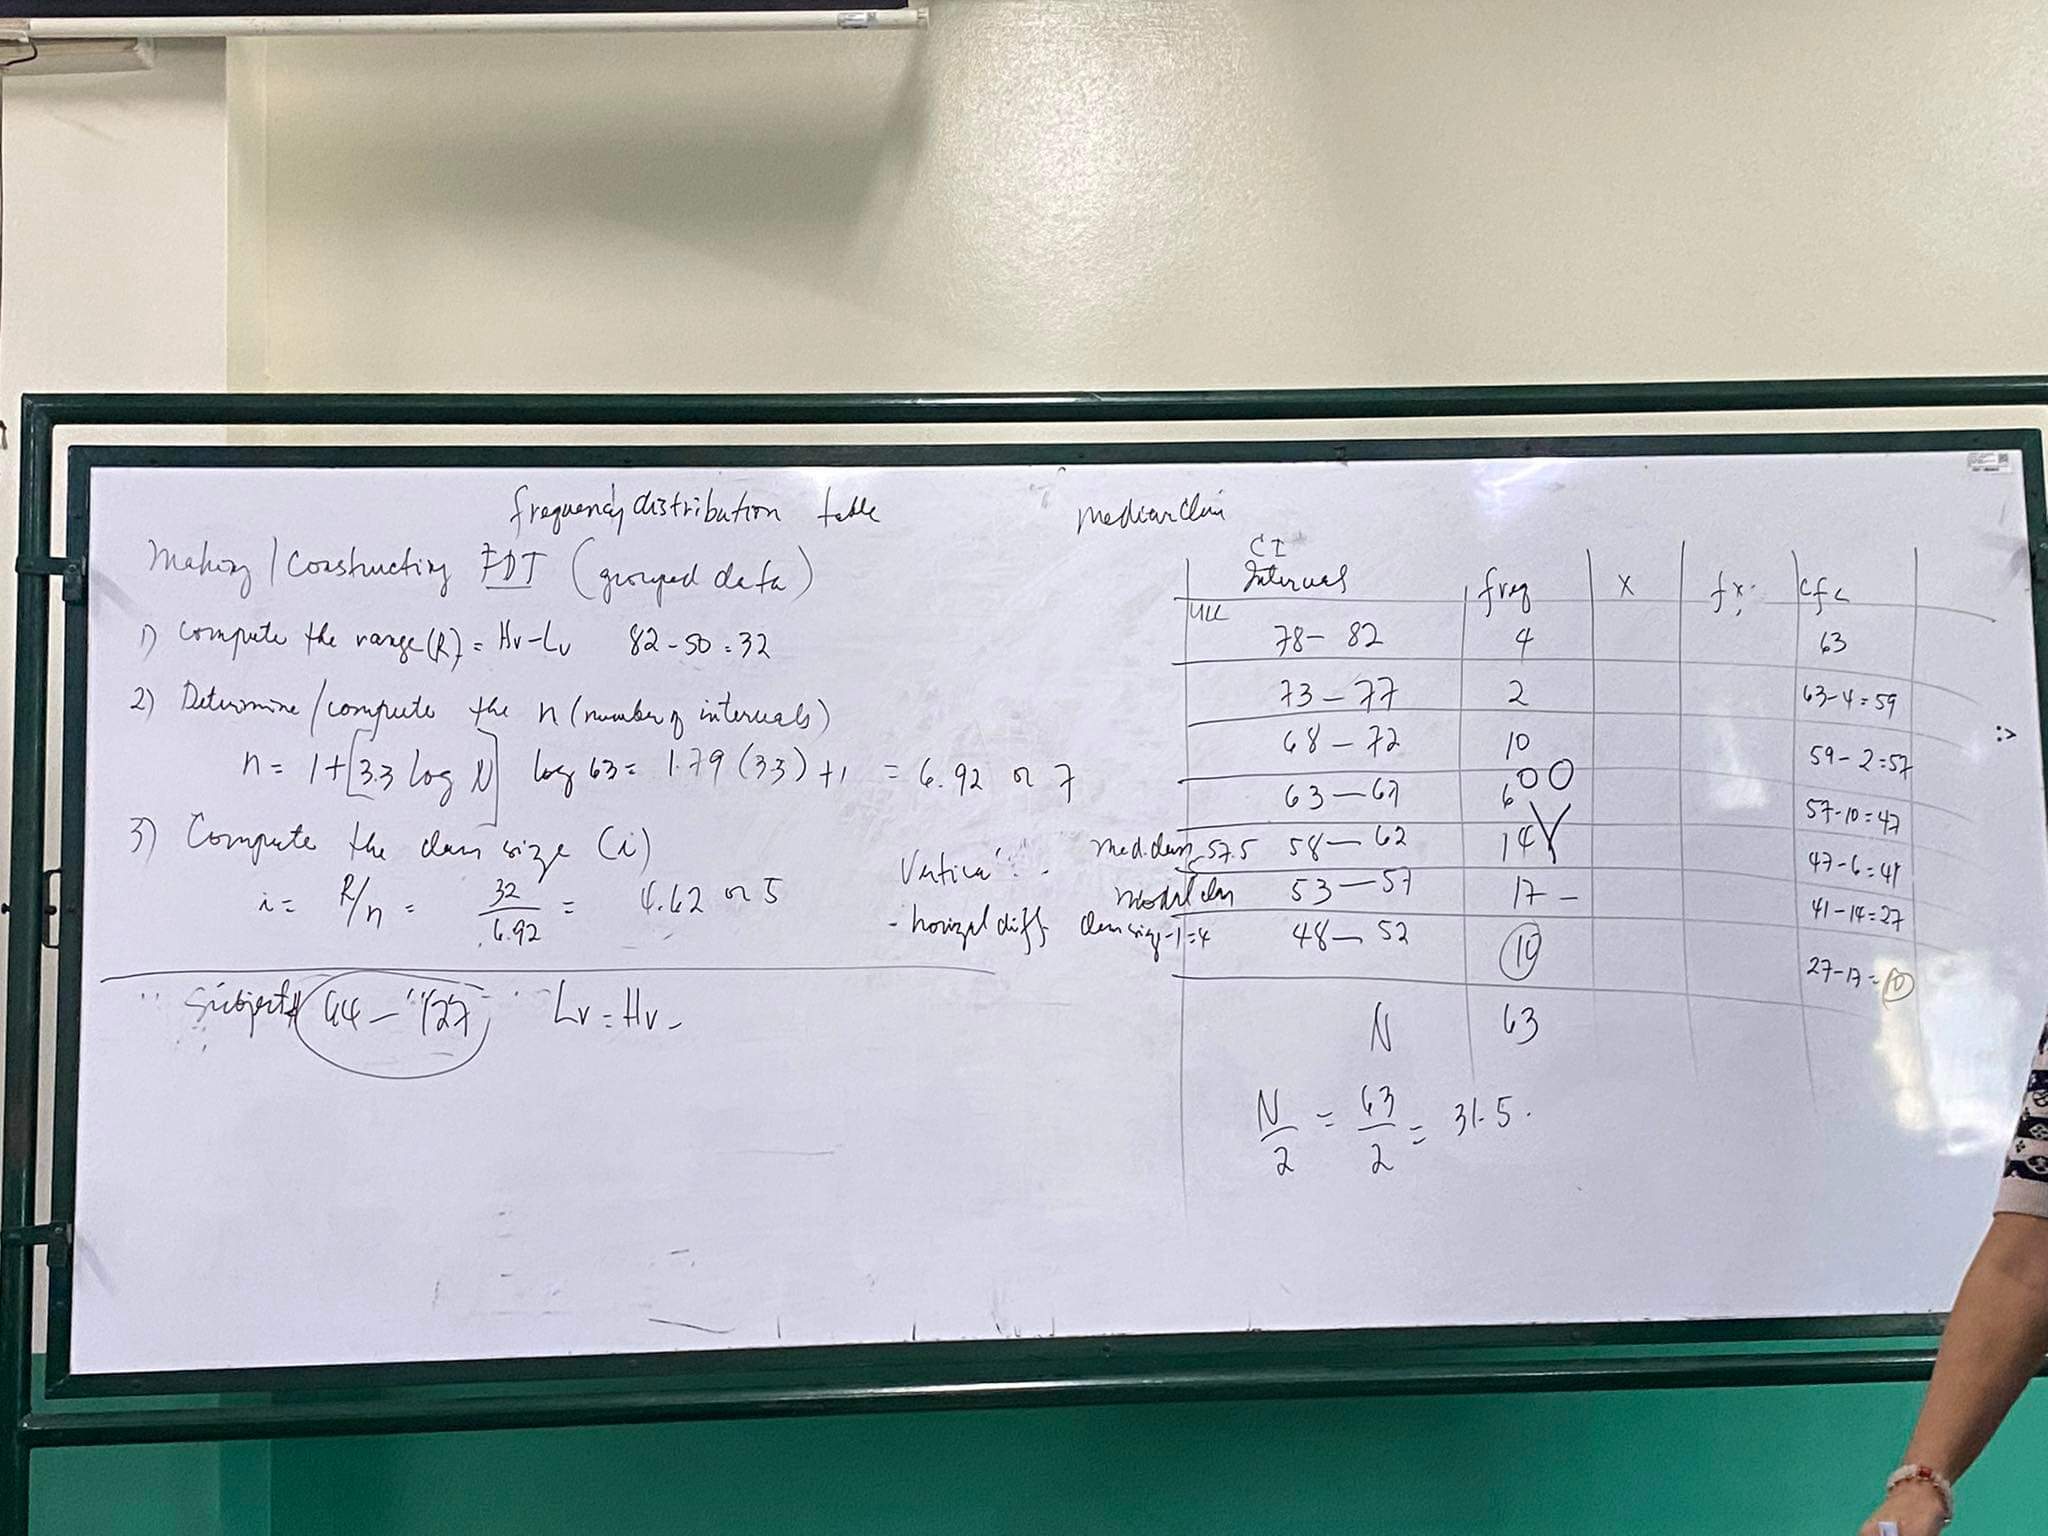 frequency distribution table
Making / Constructing FDT (grouped data)
1) Compute the range (R) = Hv - Lv 82 - 50 = 32
2) Determine / compute the n (number of intervals)
n = 1 + [3.3 log N] log 63 = 1.79 (3.3) + 1 = 6.92 or 7
3) Compute the class size (i)
i = R/n = 32/6.92 = 4.62 or 5
Subject 64 - 127 Lv = Hv -
Vertica
- horizal diff class size - 1 = 4
median class
CI
Intervals freq x fx cf<
78 - 82 4 63
73 - 77 2 63 - 4 = 59
68 - 72 10 59 - 2 = 57
63 - 67 6 57 - 10 = 47
med. class 57.5 58 - 62 14 47 - 6 = 41
modal class 53 - 57 17 - 41 - 14 = 27
48 - 52 10 27 - 17 = 10
N 63
N/2 = 63/2 = 31.5
:>